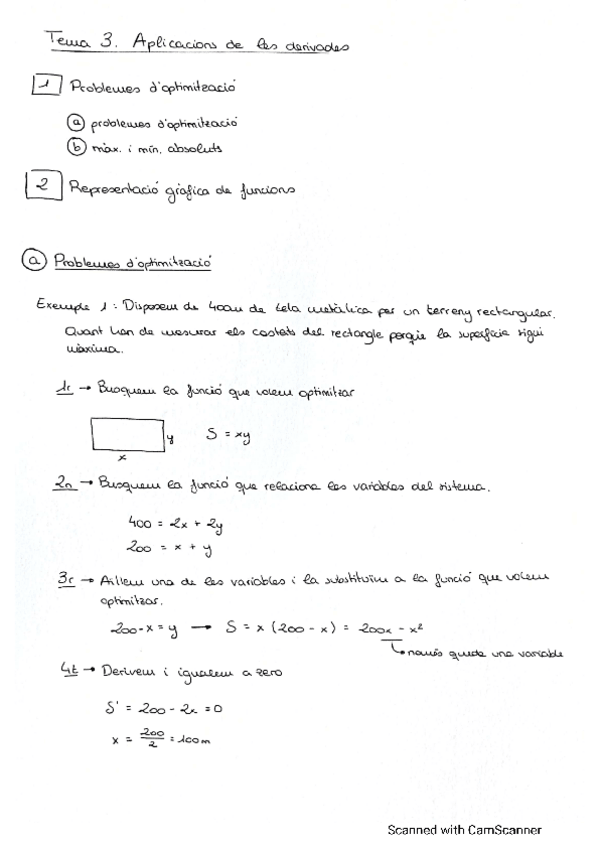 Tema 3. Aplicacions de les derivades
1 Problemes d'optimització
a problemes d'optimització
b màx. i mín. absoluts
2 Representació gràfica de funcions
a Problemes d'optimització
Exemple 1: Disposem de 400m de tela metàl·lica per un terreny rectangular.
Quant han de mesurar els costats del rectangle perquè la superfície sigui
màxima.
1r → Busquem la funció que volem optimitzar
y S = xy
x
2n → Busquem la funció que relaciona les variables del sistema.
400 = 2x + 2y
200 = x + y
3r → Aïllem una de les variables i la substituïm a la funció que volem
optimitzar.
200-x = y → S = x (200 - x) = 200x - x²
↳ només queda una variable
4t → Derivem i igualem a zero
S' = 200 - 2x = 0
x = 200/2 = 100m
Scanned with CamScanner